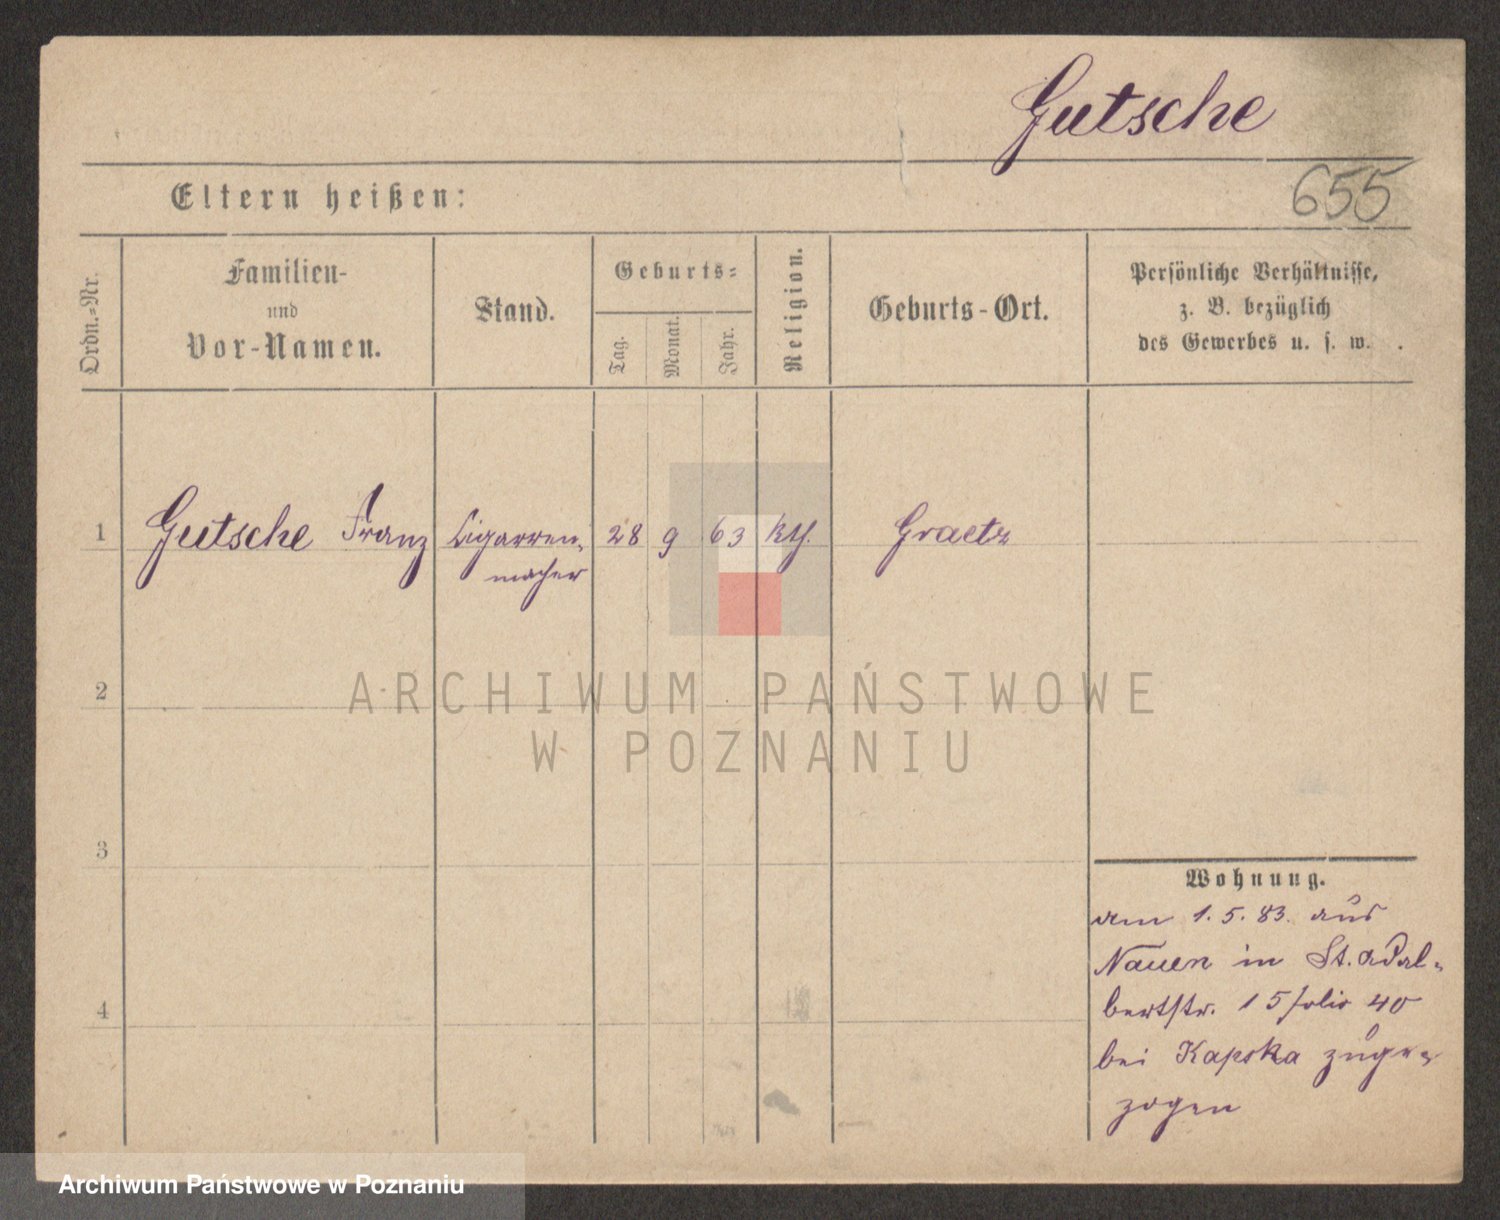 Gutsche
655
Eltern heißen:
Ordn.-Nr.
Familien-
und
Vor-Namen.
Stand.
Geburts-
Tag.
Monat.
Jahr.
Religion.
Geburts-Ort.
Persönliche Verhältnisse,
z. B. bezüglich
des Gewerbes u. s. w.
1 Gutsche Franz Cigarren- 28 9 63 kth. Graetz
macher
2
3
4
Wohnung.
am 1. 5. 83. aus
Nauen in St. Adal-
bertstr. 15 folio 40
bei Kapska zuge-
zogen
ARCHIWUM PAŃSTWOWE
W POZNANIU
Archiwum Państwowe w Poznaniu